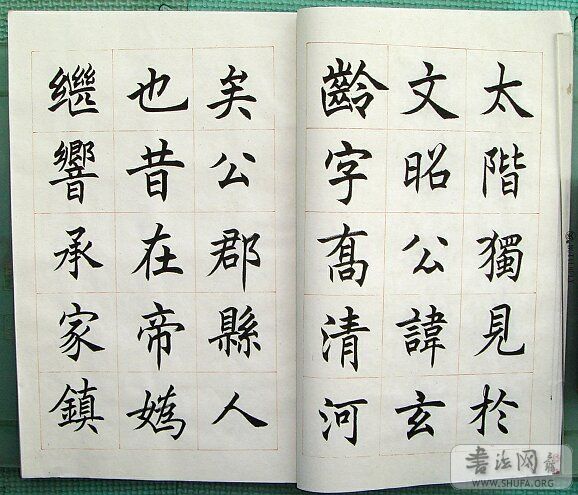 太階獨見於
文昭公諱玄
齡字喬清河
矣公郡縣人
也昔在帝媯
繼響承家鎮
書法网
WWW.SHUFA.ORG